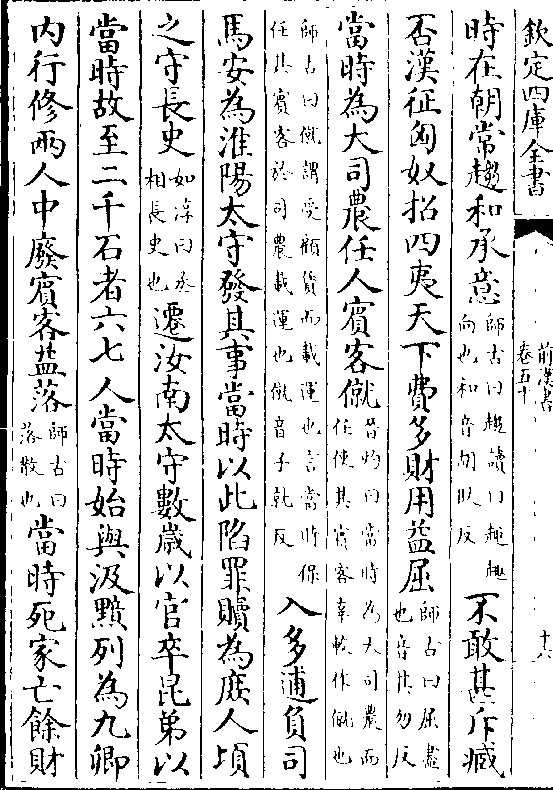 欽定四庫全書
前漢書
卷五十
十六
時在朝常趨和承意師古曰趨讀曰趣趣向也和音胡臥反不敢甚斥臧
否漢征匈奴招四夷天下費多財用益屈師古曰屈盡也音其勿反
當時為大司農任人賓客僦晉灼曰當時為大司農而任使其賓客辜較作僦也
師古曰僦謂受顧賃而載運也言當時保任其賓客於司農載運也僦音子就反入多逋負司
馬安為淮陽太守發其事當時以此陷罪贖為庶人頃
之守長史如淳曰丞相長史也遷汝南太守數歲以官卒昆弟以
當時故至二千石者六七人當時始與汲黯列為九卿
内行修兩人中廢賓客益落師古曰落散也當時死家亡餘財